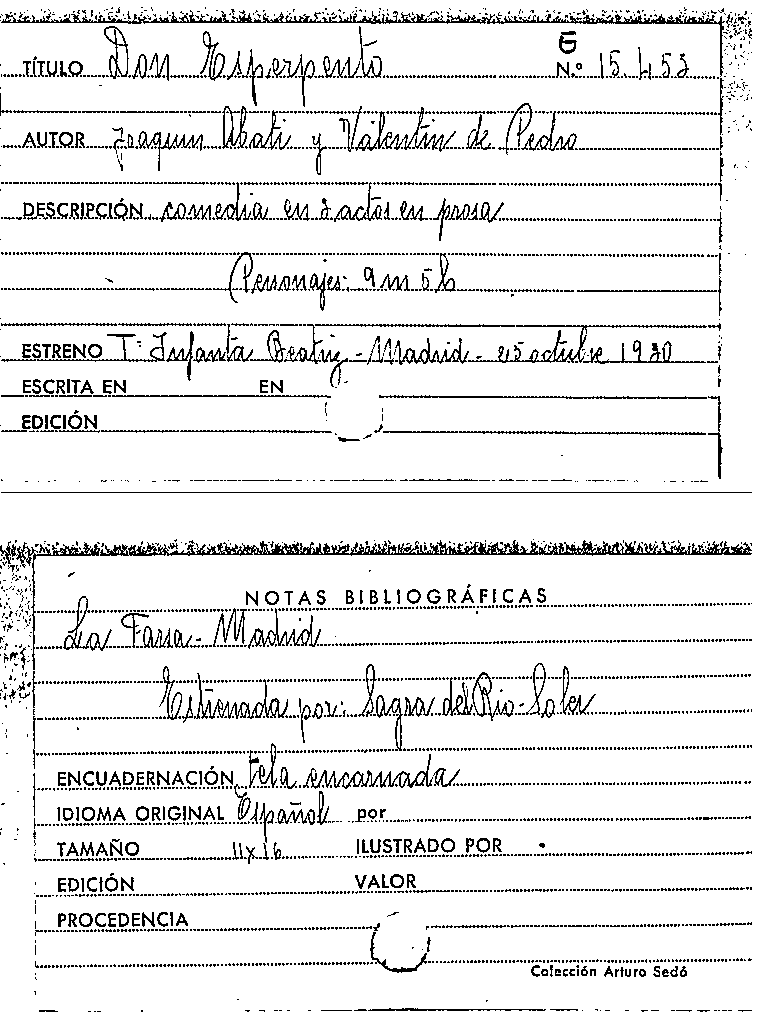 G
TÍTULO Don Esperpento N.º 15.453
AUTOR Joaquin Abati y Valentin de Pedro
DESCRIPCIÓN comedia en 3 actos en prosa
(Personajes: 9 m 5 h
ESTRENO Tº Infanta Beatriz - Madrid - 25 octubre 1930
ESCRITA EN EN
EDICIÓN
NOTAS BIBLIOGRÁFICAS
La Farsa - Madrid
Estrenada por: Sagra del Rio - Soler
ENCUADERNACIÓN tela encarnada
IDIOMA ORIGINAL Español por
TAMAÑO 11 x 16 ILUSTRADO POR
EDICIÓN VALOR
PROCEDENCIA
Colección Arturo Sedó